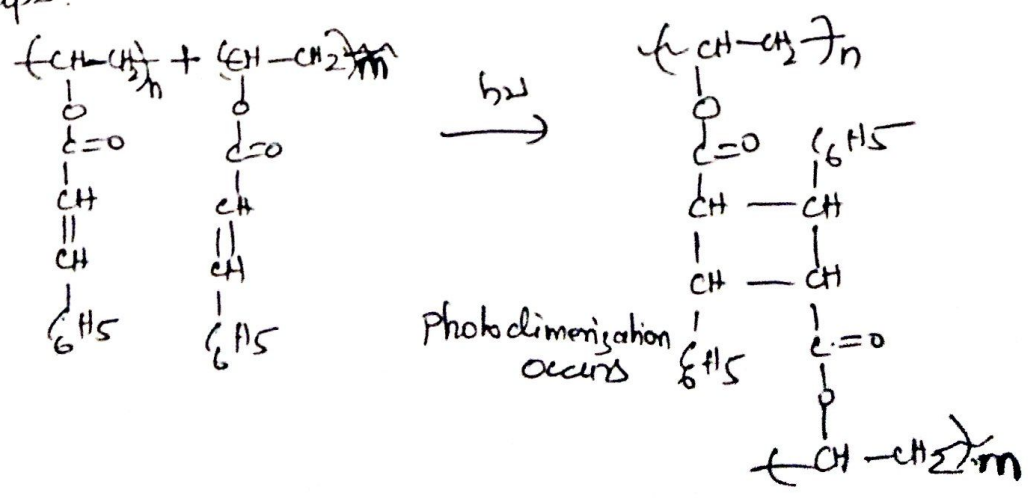 (CH-CH2)n + (CH-CH2)m hν (CH-CH2)n
O O O
C=O C=O C=O C6H5
CH CH CH — CH
CH CH CH — CH
C6H5 C6H5 Photodimerization C6H5 C=O
occurs O
(CH-CH2)m